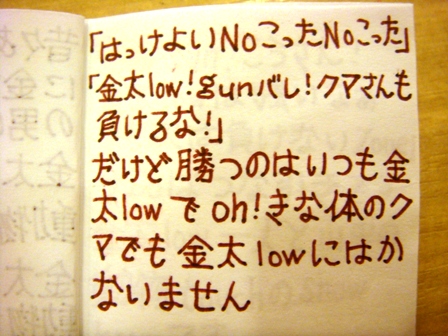 「はっけよいNoこったNoこった」
「金太low!gunバレ!クマさんも
負けるな!」
だけど勝つのはいつも金
太lowでoh!きな体のク
マでも金太lowにはか
ないません